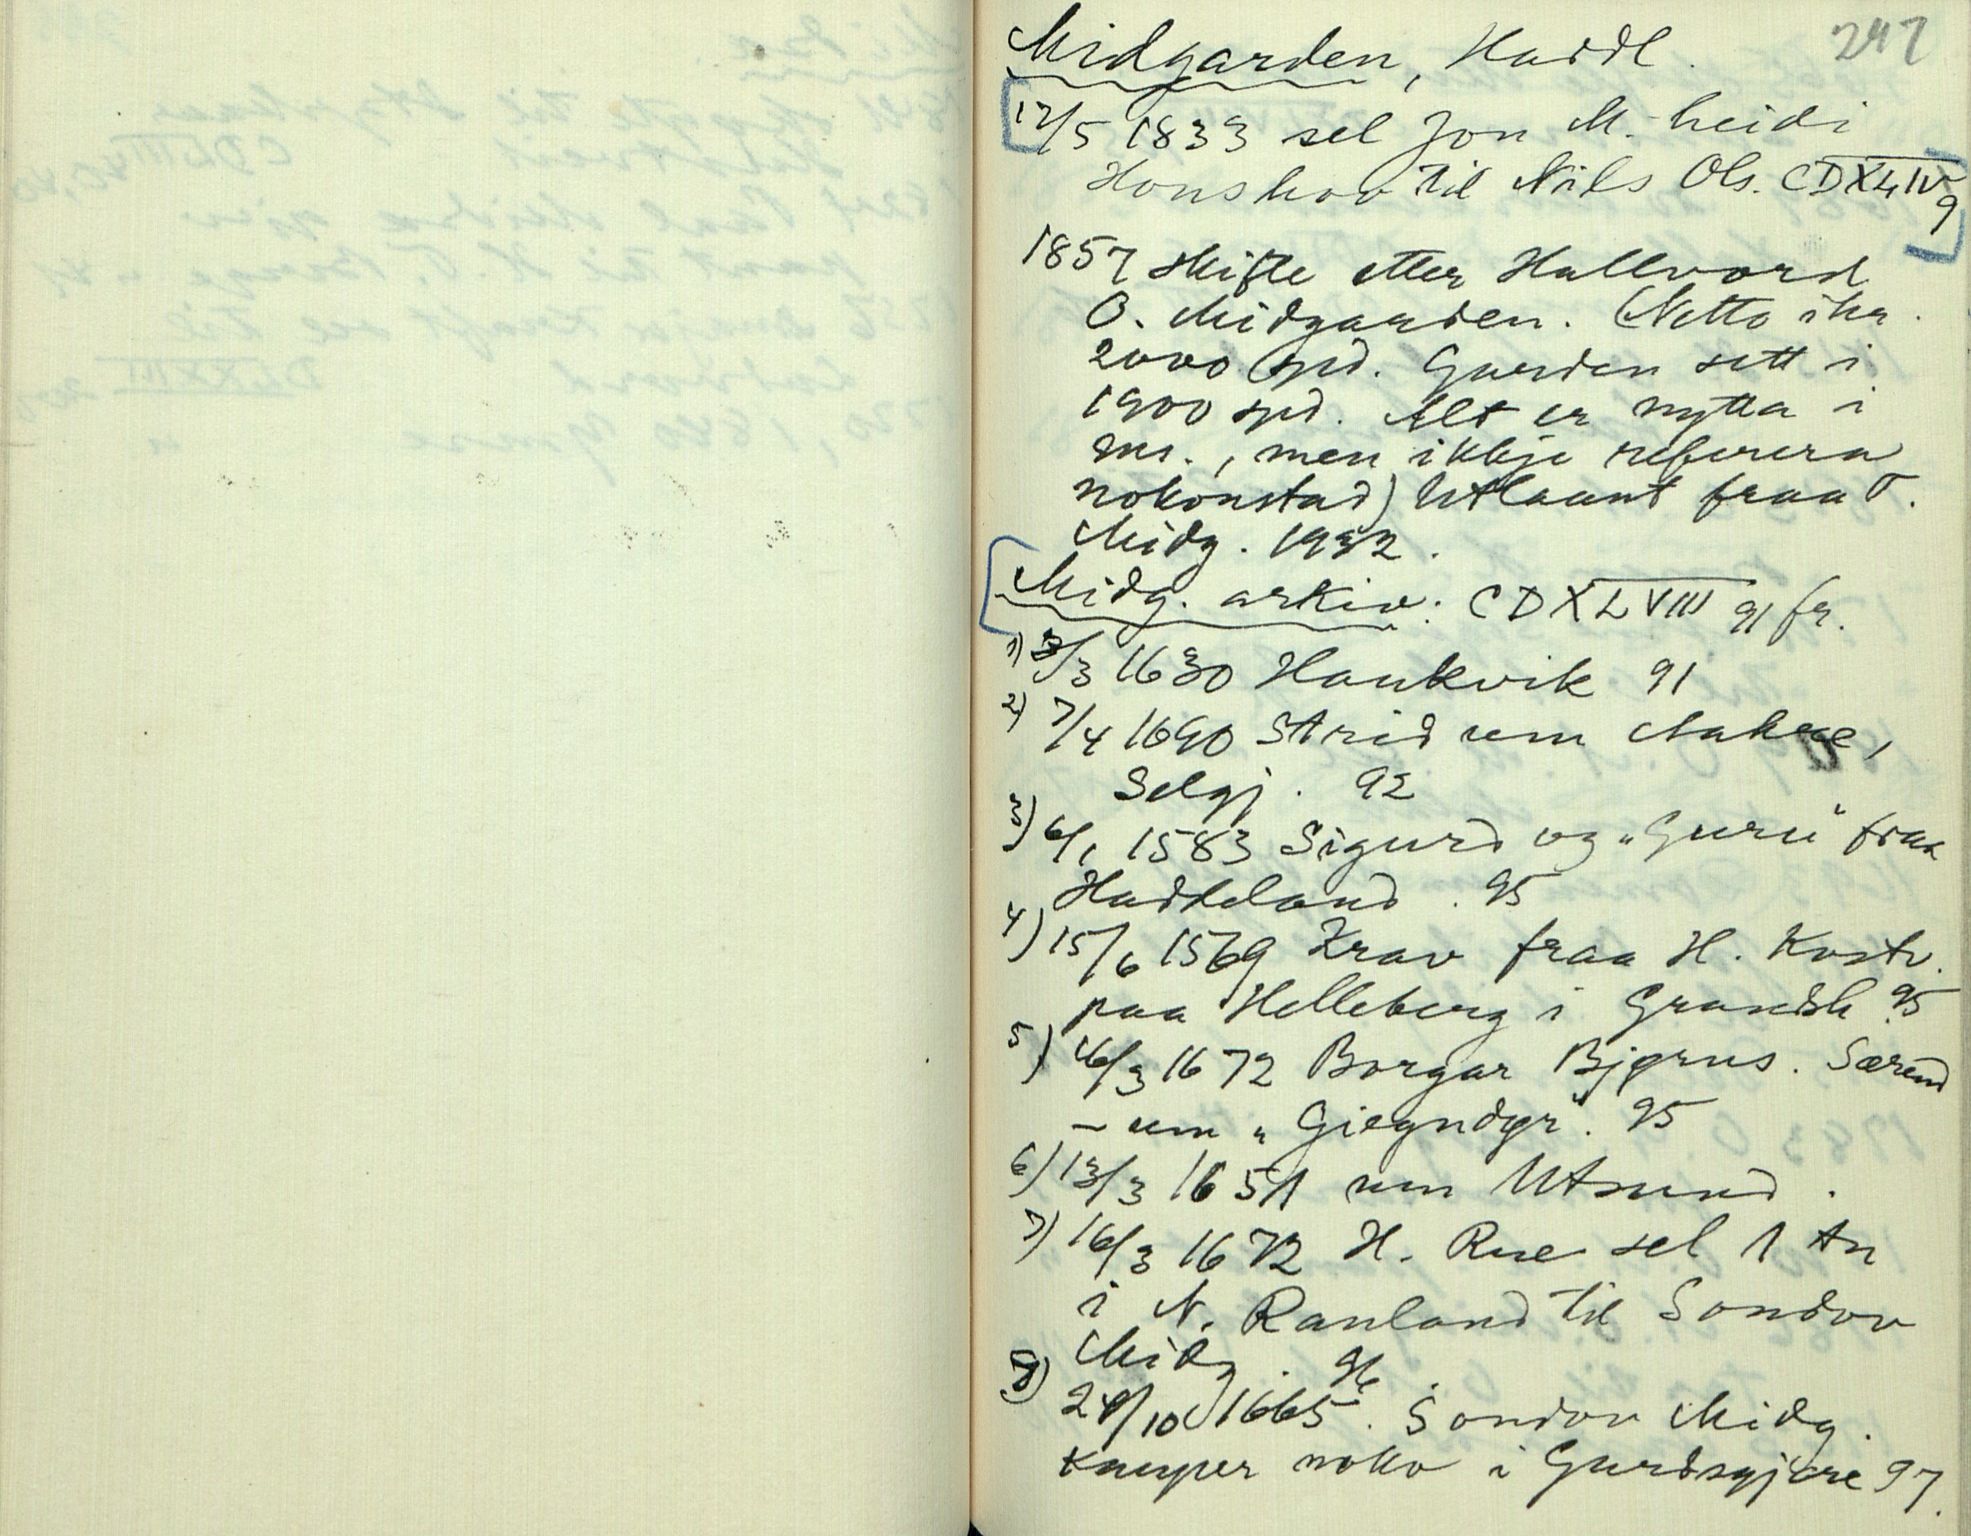 247
Midgarden, Haddl.
12/5 1833 sel Jon M. heidi
Honshov til Nils Ols. CDXLIV 9
1857 skifte etter Hallvord
O. Midgaarden. (Netto ikr.
2000 spd. Garden sett i
1900 spd. Alt er nytta i
mr., men ikkje referera
nokonstad) Utlaant fraa O.
Midg. 1932.
Midg. arkiv: CDXLVIII 91 fr.
1) 3/3 1630 Haukvik 91
2) 7/4 1690 Strid um
Selgj. 92
3) 6/1 1583 Sigurd og „Guru" fraa
Haddeland. 95
4) 15/6 1569 Krav fraa H. Kostv.
paa Helleberg i Gransh. 95
5) 16/3 1672 Borgar Bjørns. Særend
- um „Giegndør". 95
6) 13/3 1651 um Utsund.
7) 16/3 1672 H. Rue sel 1 tn
i N. Rauland til Sondov
Midg. 96
8) 24/10 1665. Sondov Midg.
kauper noko i Gurdsgjære 97.